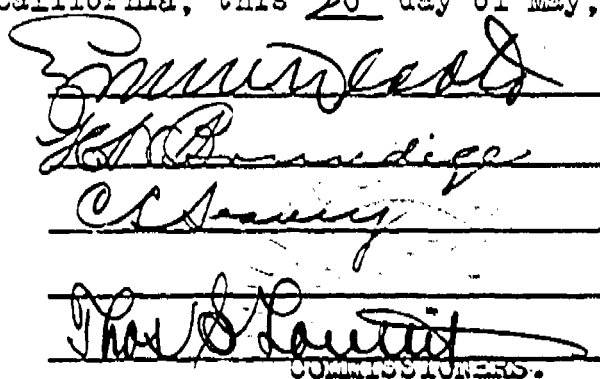 California, this 20 day of May,
H W Brundige
C L Seavey
Thos S Louttit
COMMISSIONERS.